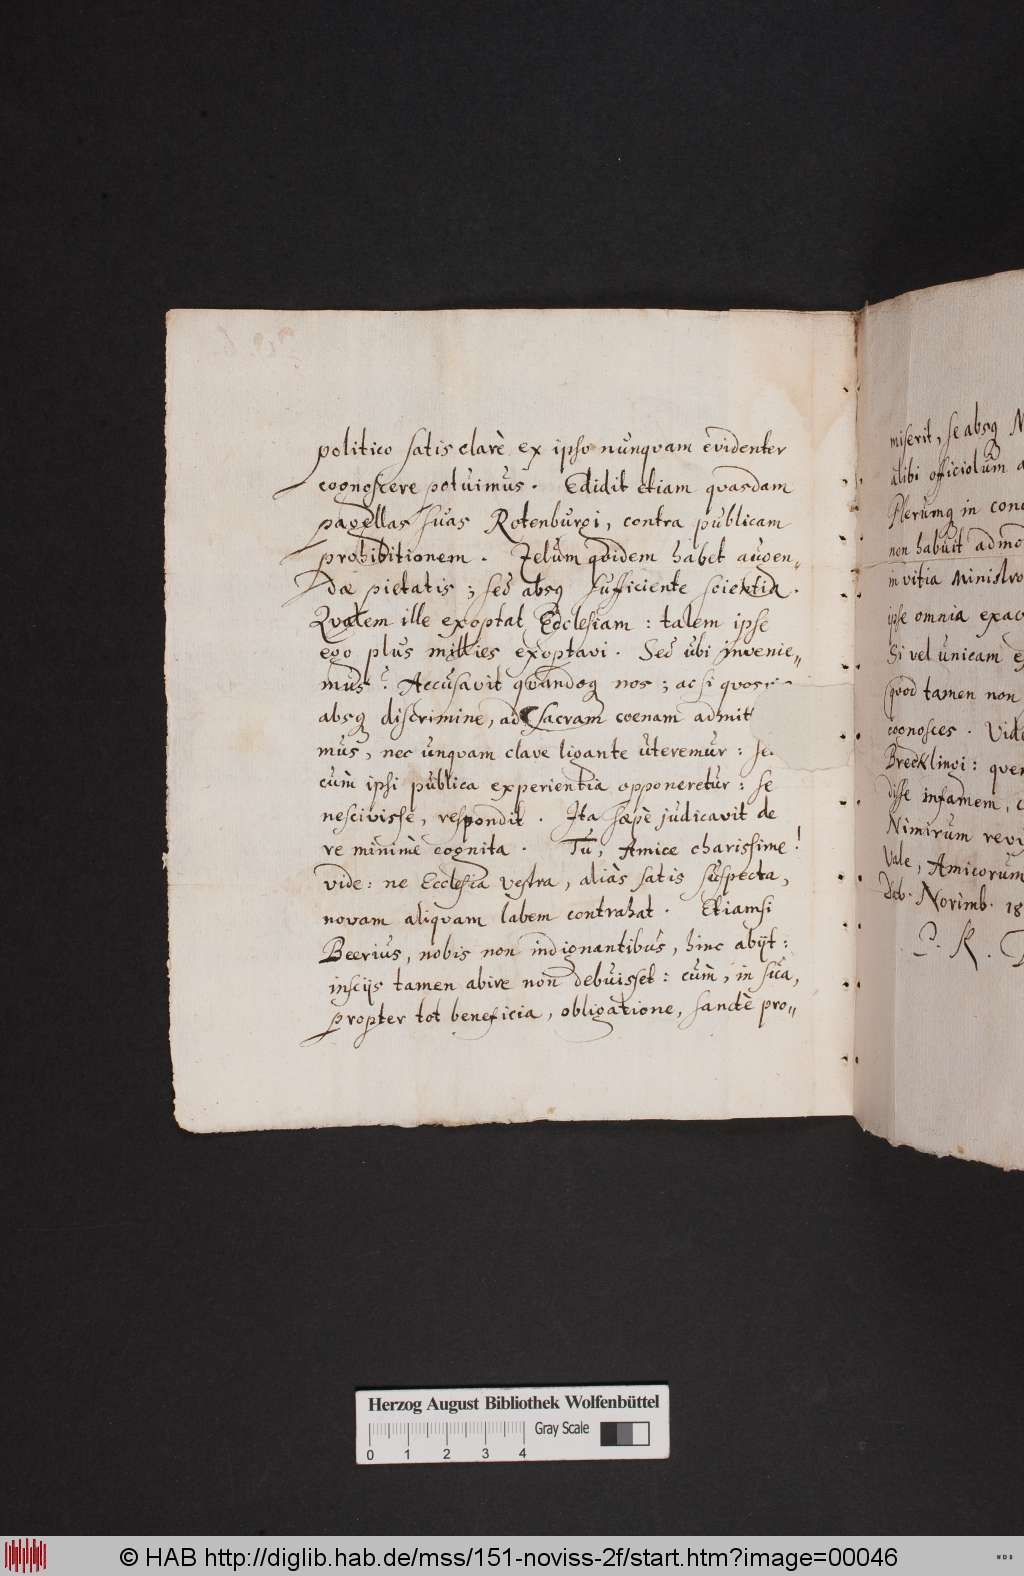 politico satis clarè ex ipso nunquam evidenter
cognoscere potuimus. Edidit etiam quasdam
pagellas suas Rotenburgi, contra publicam
prohibitionem. Zelum quidem habet augen„
dæ pietatis; sed absq sufficiente scientia.
Qualem ille exoptat Ecclesiam: talem ipse
ego plus millies exoptavi. Sed ubi invenie„
mus? Accusavit quandoq nos; ac si quos
absq discrimine, ad sacram coenam admit
mus, nec unquam clave ligante uteremur: se
cum̀ ipsi publica experientia opponeretur: se
nescivisse, respondit. Ita sæpè judicavit de
re minimè cognita. Tu, Amice charissime!
vide: ne Ecclesia vestra, aliàs satis suspecta,
novam aliquam labem contrahat. Etiamsi
Beerius, nobis non indignantibus, hinc abijt:
insciis tamen abire non debuisset: cum̀, in sua,
propter tot beneficia, obligatione, sanctè pro„
miserit, se absq
alibi officiolum
Plerumq in
non habuit
in vitia Ministro
ipse omnia
Si vel unicam
quod tamen non
cognosces.
Brecklingi:
disse infamem,
Nimirum
Vale, Amicorum
Dab. Norimb. 18
Herzog August Bibliothek Wolfenbüttel
Gray Scale
0 1 2 3 4
© HAB http://diglib.hab.de/mss/151-noviss-2f/start.htm?image=00046